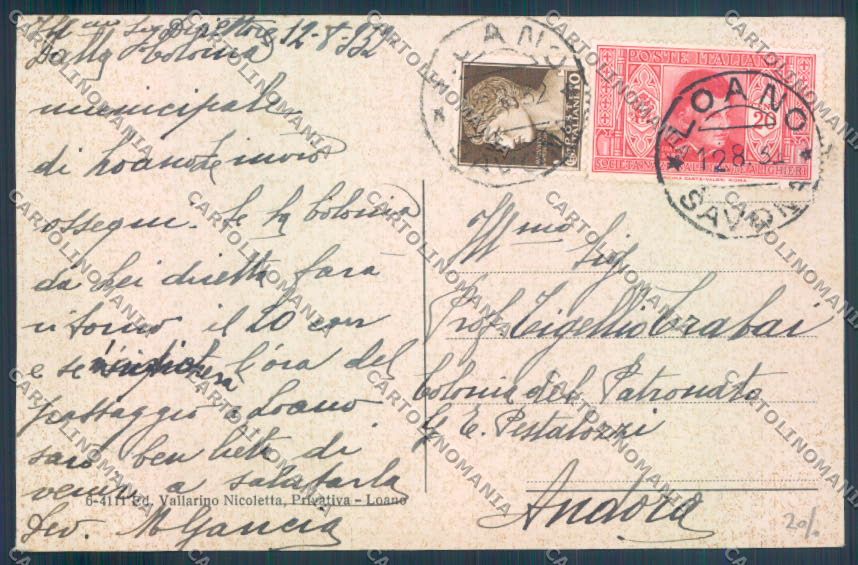 Ill.mo Sig. Direttore 12-8-932
Dalla Colonia
municipale
di Loano Le invio
ossequi. Se la Colonia
da Lei diretta farà
ritorno il 20 corr
e se m'indicherà l'ora del
passaggio a Loano
sarò ben lieta di
venire a salutarla
Dev. M Gancia
6-4111 Ed. Vallarino Nicoletta, Privativa - Loano
LOANO
POSTE ITALIANE
10
POSTE ITALIANE
20
SOCIETÀ NAZIONALE DANTE ALIGHIERI
LOANO
12 8 32
SAVONA
Ill.mo Sig
Prof. Tigellio Trabai
Colonia del Patronato
G. E. Pestalozzi
Andora
20/.
CARTOLINOMANIA